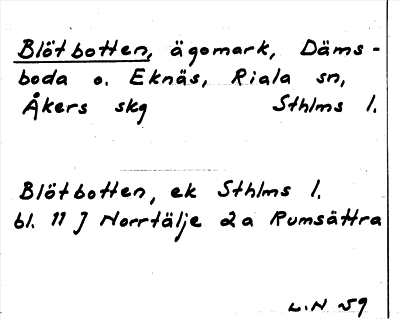 Blötbotten, ägomark, Däms-
boda o. Eknäs, Riala sn,
Åkers skg Sthlms l.
Blötbotten, ek Sthlms l.
bl. 11 J Norrtälje 2a Rumsättra
L.N 59